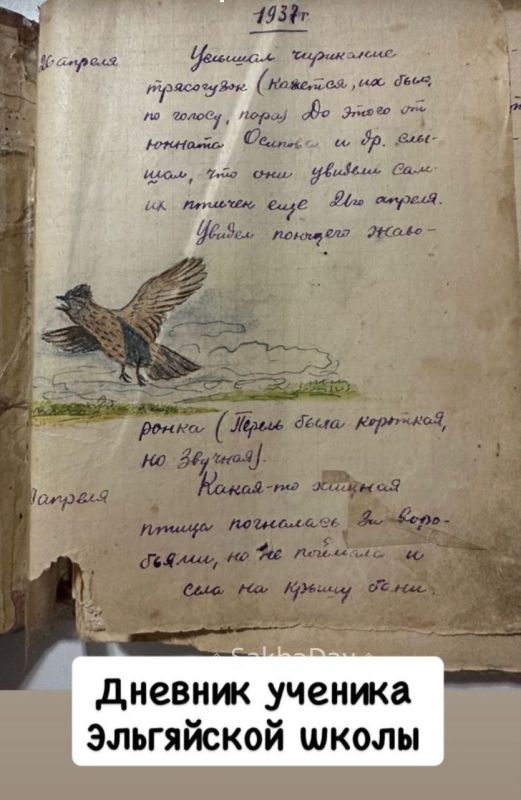 1937г
26 апреля Услышал чирикание
трясогузок (кажется, их было,
по голосу, пара) До этого от
юнната Осипова и др. слы-
шал, что они увидели сам-
их птичек еще 21го апреля.
Увидел поющего жаво-
ронка (Трель была короткая,
но звучная).
апреля Какая-то хищная
птица погналась за воро-
бьями, но не поймала и
села на крышу бани.
SakhaDay
Дневник ученика
Эльгяйской школы